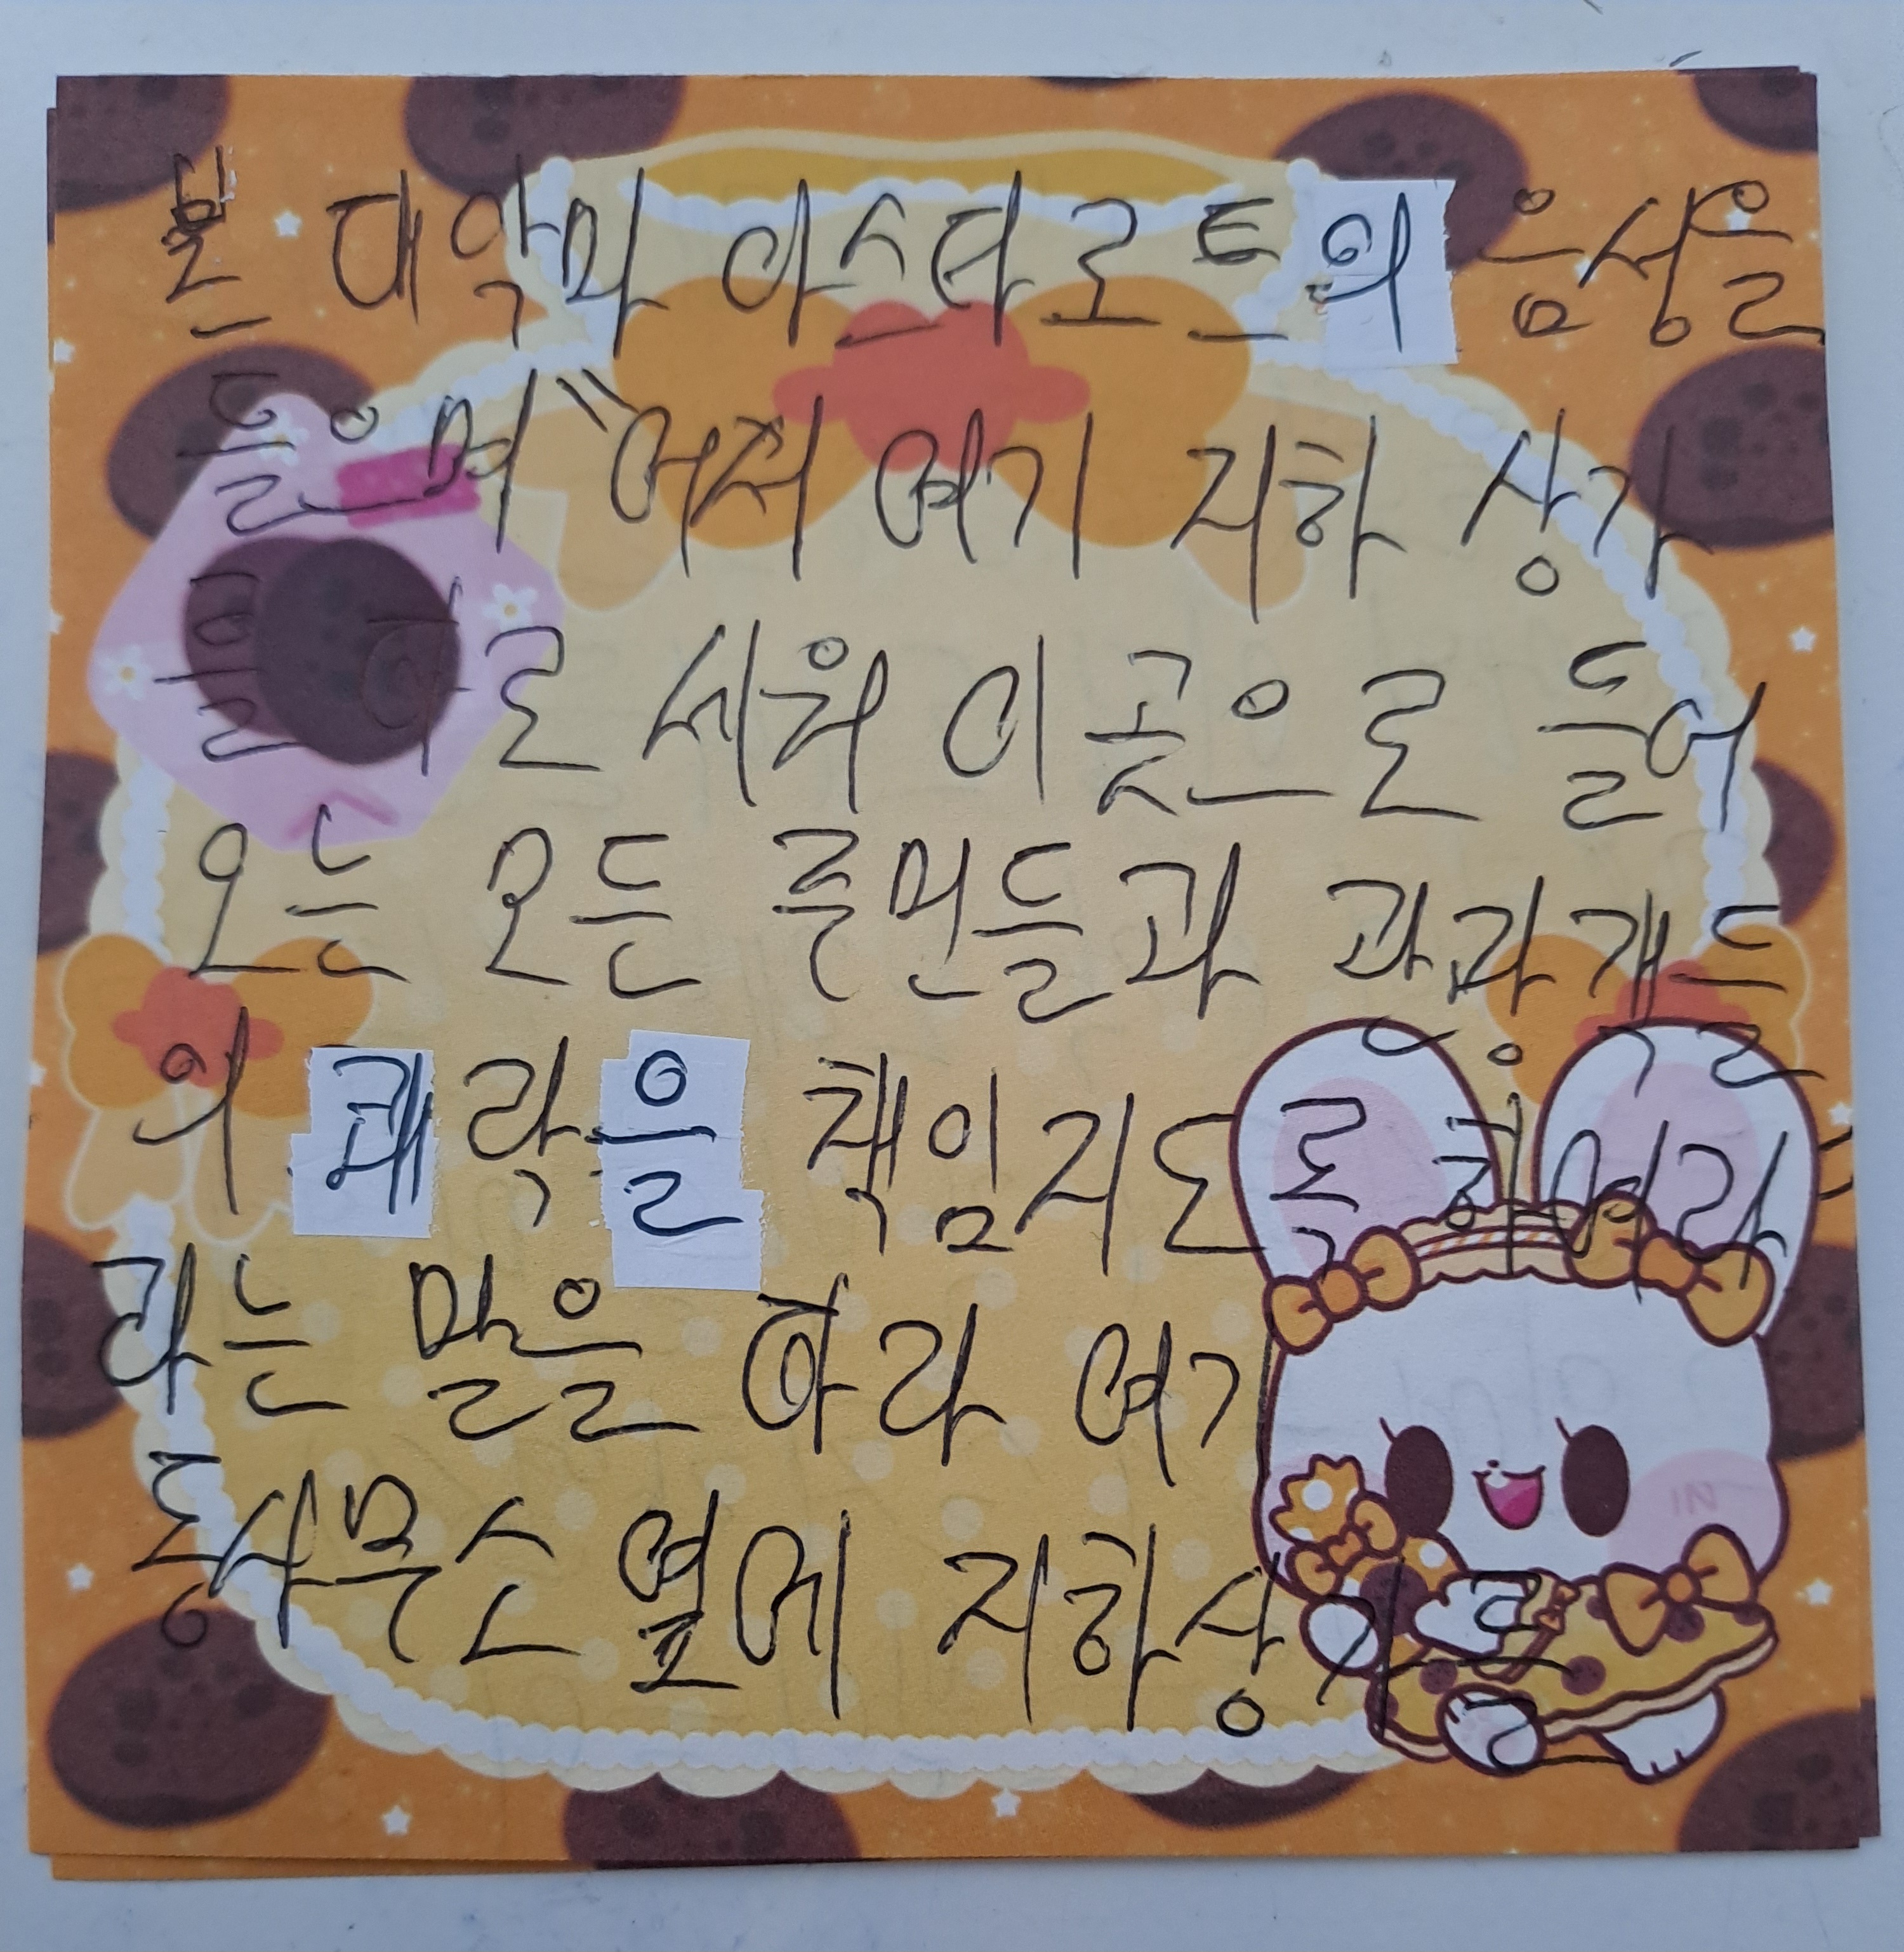 본 대악마 아스타로트의 음성을
들으며 "어서 여기 지하 상가
를 바로 세워 이곳으로 들어
오는 모든 주민들과 관광객들
의 쾌락을 책임지도록 하여라"
라는 말을 하라 여기
동사무소 옆에 지하상가를